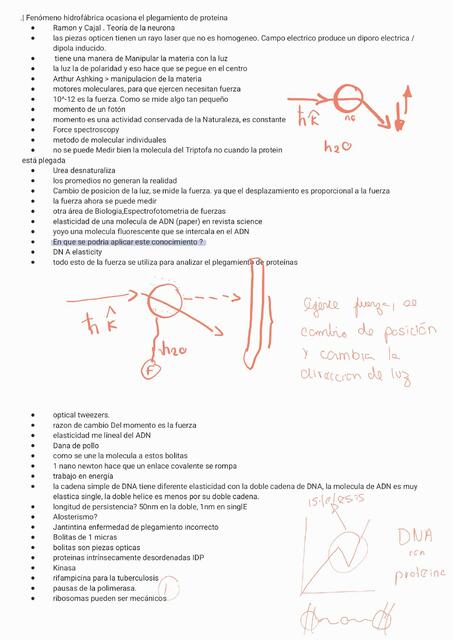 .| Fenómeno hidrofábrica ocasiona el plegamiento de proteina
• Ramon y Cajal . Teoría de la neurona
• las piezas opticen tienen un rayo laser que no es homogeneo. Campo electrico produce un diporo electrica /
dipola inducido.
• tiene una manera de Manipular la materia con la luz
• la luz la de polaridad y eso hace que se pegue en el centro
• Arthur Ashking > manipulacion de la materia
• motores moleculares, para que ejercen necesitan fuerza
• 10^-12 es la fuerza. Como se mide algo tan pequeño
• momento de un fotón
• momento es una actividad conservada de la Naturaleza, es constante
• Force spectroscopy
• metodo de molecular individuales
• no se puede Medir bien la molecula del Triptofa no cuando la protein
está plegada
ħ k̂
h20
• Urea desnaturaliza
• los promedios no generan la realidad
• Cambio de posicion de la luz, se mide la fuerza. ya que el desplazamiento es proporcional a la fuerza
• la fuerza ahora se puede medir
• otra área de Biologia,Espectrofotometria de fuerzas
• elasticidad de una molecula de ADN (paper) en revista science
• yoyo una molecula fluorescente que se intercala en el ADN
• En que se podria aplicar este conocimiento ?
• DN A elasticity
• todo esto de la fuerza se utiliza para analizar el plegamiento de proteínas
ħ k̂
h20
F
Ejerce fuerza, se
cambio de posición
y cambia la
direccion de luz
• optical tweezers.
• razon de cambio Del momento es la fuerza
• elasticidad me lineal del ADN
• Dana de pollo
• como se une la molecula a estos bolitas
• 1 nano newton hace que un enlace covalente se rompa
• trabajo en energía
• la cadena simple de DNA tiene diferente elasticidad con la doble cadena de DNA, la molecula de ADN es muy
elastica single, la doble helice es menos por su doble cadena.
• longitud de persistencia? 50nm en la doble, 1nm en singlE
• Alosterismo?
• Jantintina enfermedad de plegamiento incorrecto
• Bolitas de 1 micras
• bolitas son piezas opticas
• proteinas intrínsecamente desordenadas IDP
• Kinasa
• rifampicina para la tuberculosis
• pausas de la polimerasa.
• ribosomas pueden ser mecánicos
DNA
con
proteina